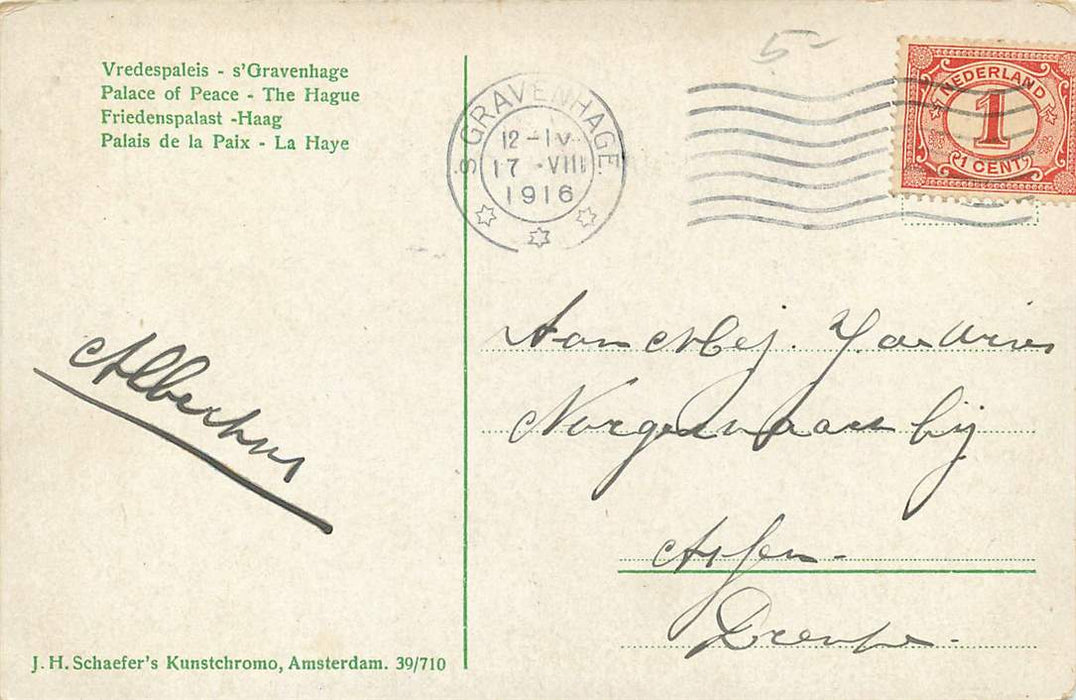 Vredespaleis - s'Gravenhage
Palace of Peace - The Hague
Friedenspalast -Haag
Palais de la Paix - La Haye
5-
'S GRAVENHAGE.
12-IV
17 -VIII
1916
NEDERLAND
1
1 CENT
Albertus
Aan Mej. J. de Vries
Norgervaart bij
Assen-
Drenthe-
J. H. Schaefer's Kunstchromo, Amsterdam. 39/710